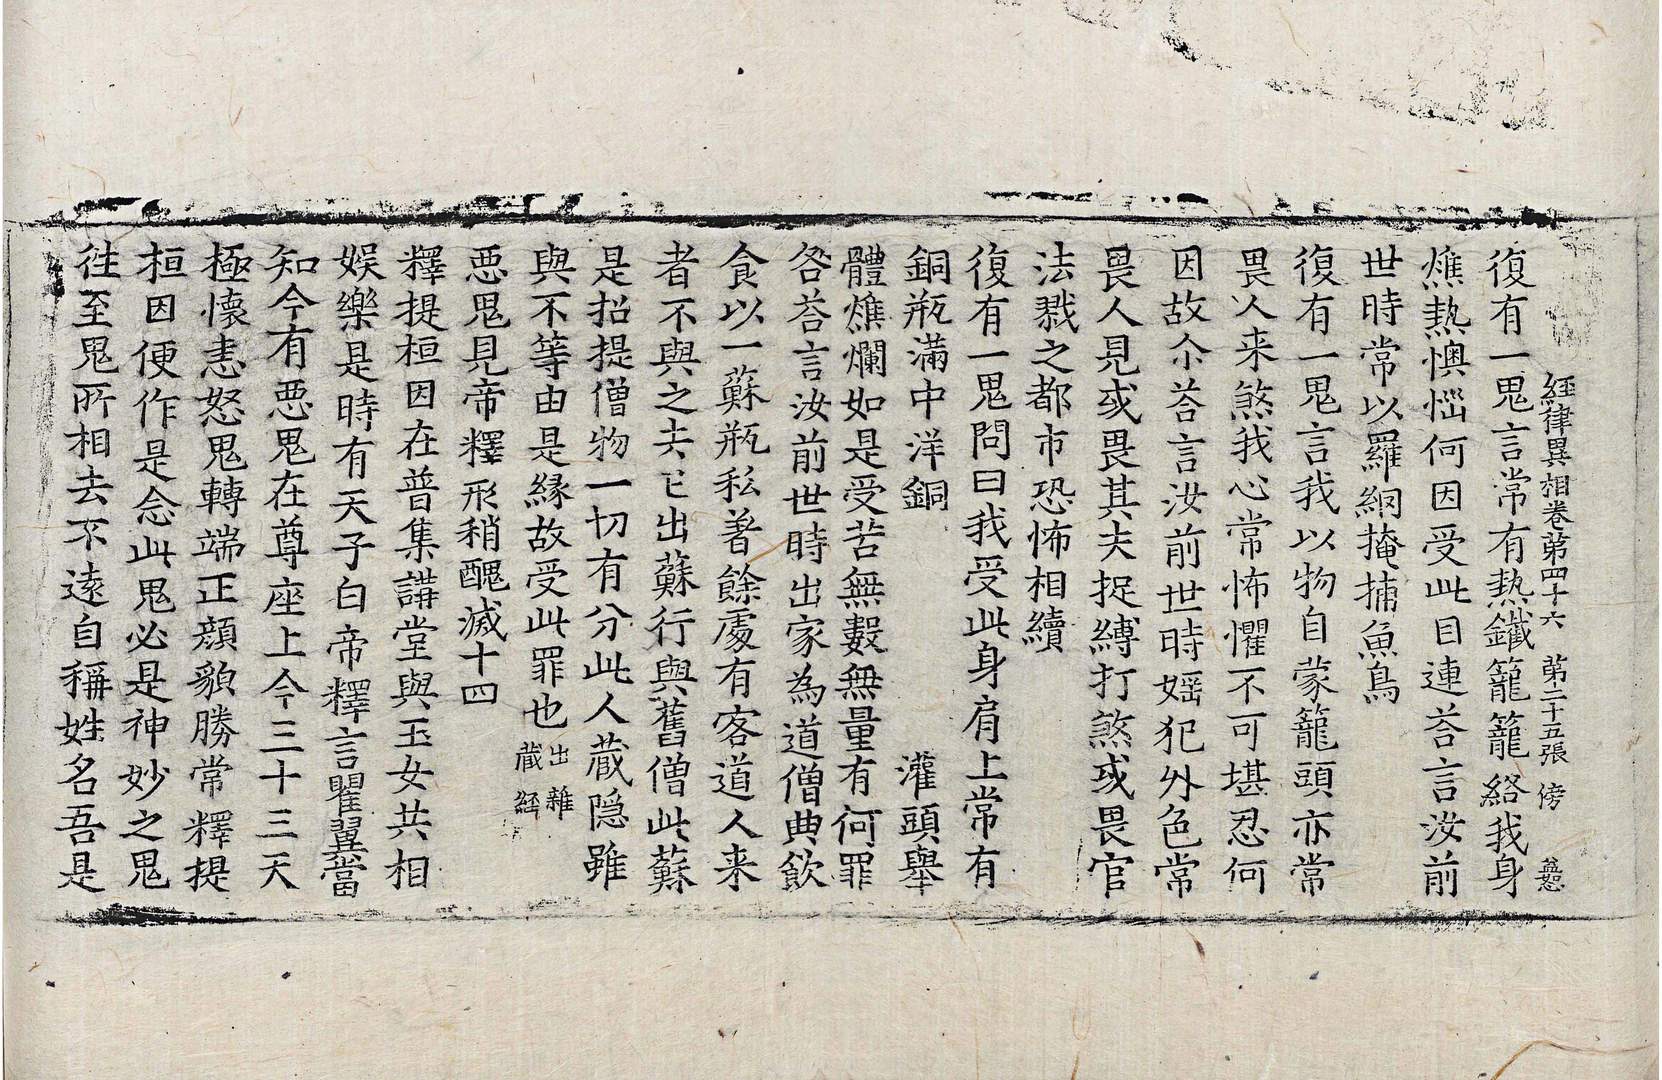 經律異相卷第四十六 第二十五張 傍
復有一鬼言常有熱鐵籠籠絡我身
燋熱懊惱何因受此目連荅言汝前
世時常以羅網掩捕魚鳥
復有一鬼言我以物自蒙籠頭亦常
畏人来煞我心常怖懼不可堪忍何
因故尒荅言汝前世時婬犯外色常
畏人見或畏其夫捉縛打煞或畏官
法戮之都市恐怖相續
復有一鬼問曰我受此身肩上常有
銅瓶滿中洋銅 灌頭舉
體燋爛如是受苦無數無量有何罪
咎荅言汝前世時出家為道僧典飲
食以一蘇瓶私著餘處有客道人来
者不與之去已出蘇行與舊僧此蘇
是招提僧物一切有分此人蔵隠雖
與不等由是緣故受此罪也出雜蔵經
惡鬼見帝釋形稍醜滅十四
釋提桓因在普集講堂與玉女共相
娛樂是時有天子白帝釋言瞿翼當
知今有惡鬼在尊座上今三十三天
極懷恚怒鬼轉端正顔貌勝常釋提
桓因便作是念此鬼必是神妙之鬼
徃至鬼所相去不遠自稱姓名吾是